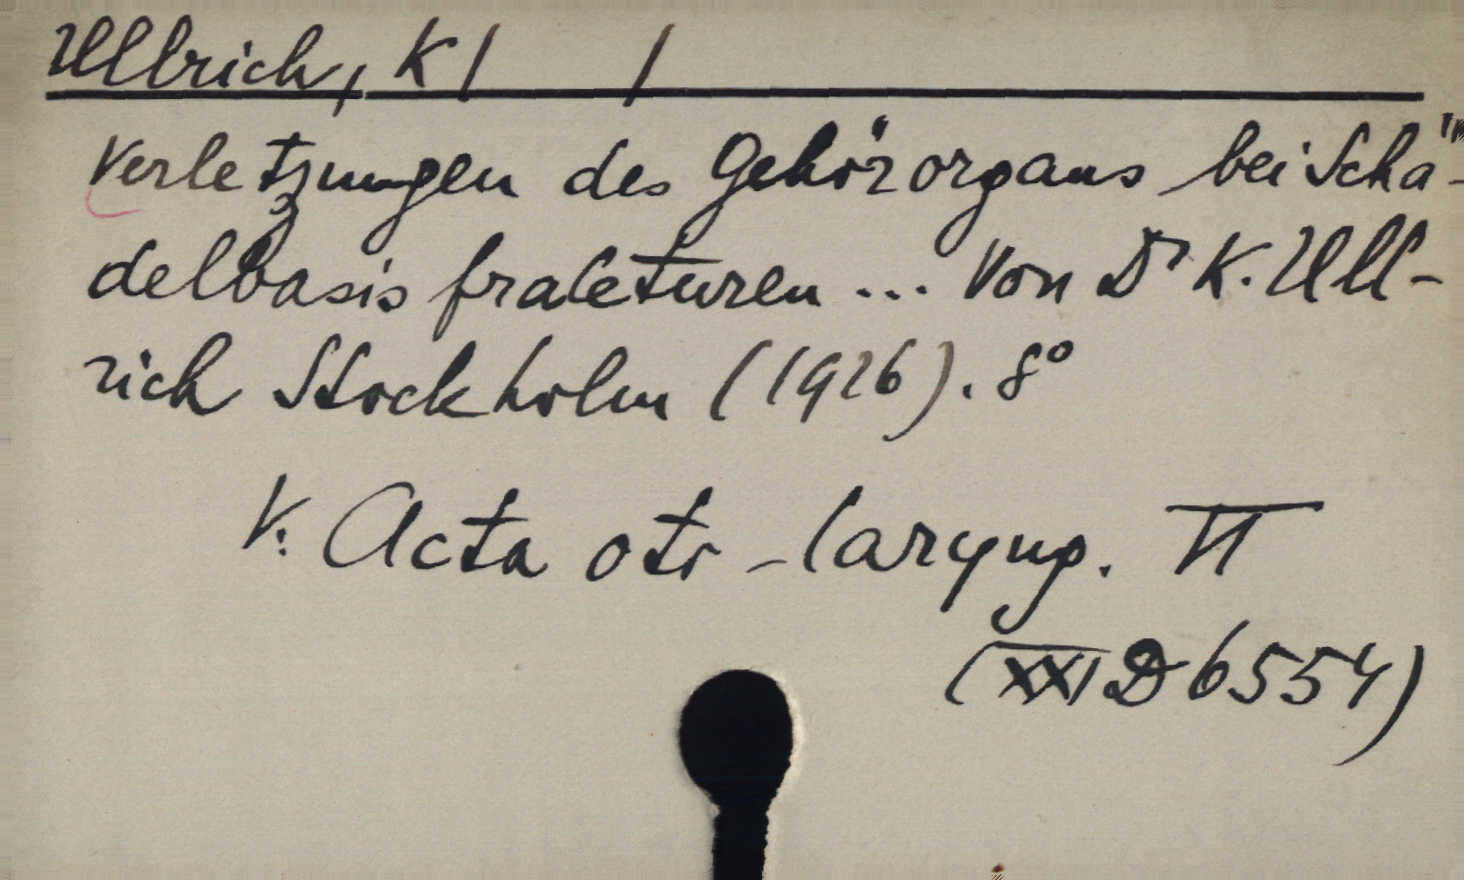 Ullrich, K/ /
Verletzungen des Gehörorgans bei Schä-
delbasis fracturen ... Von Dr K. Ull-
rich Stockholm (1926). 8°
V. Acta oto-laryng. VI
(XXI D 6554)